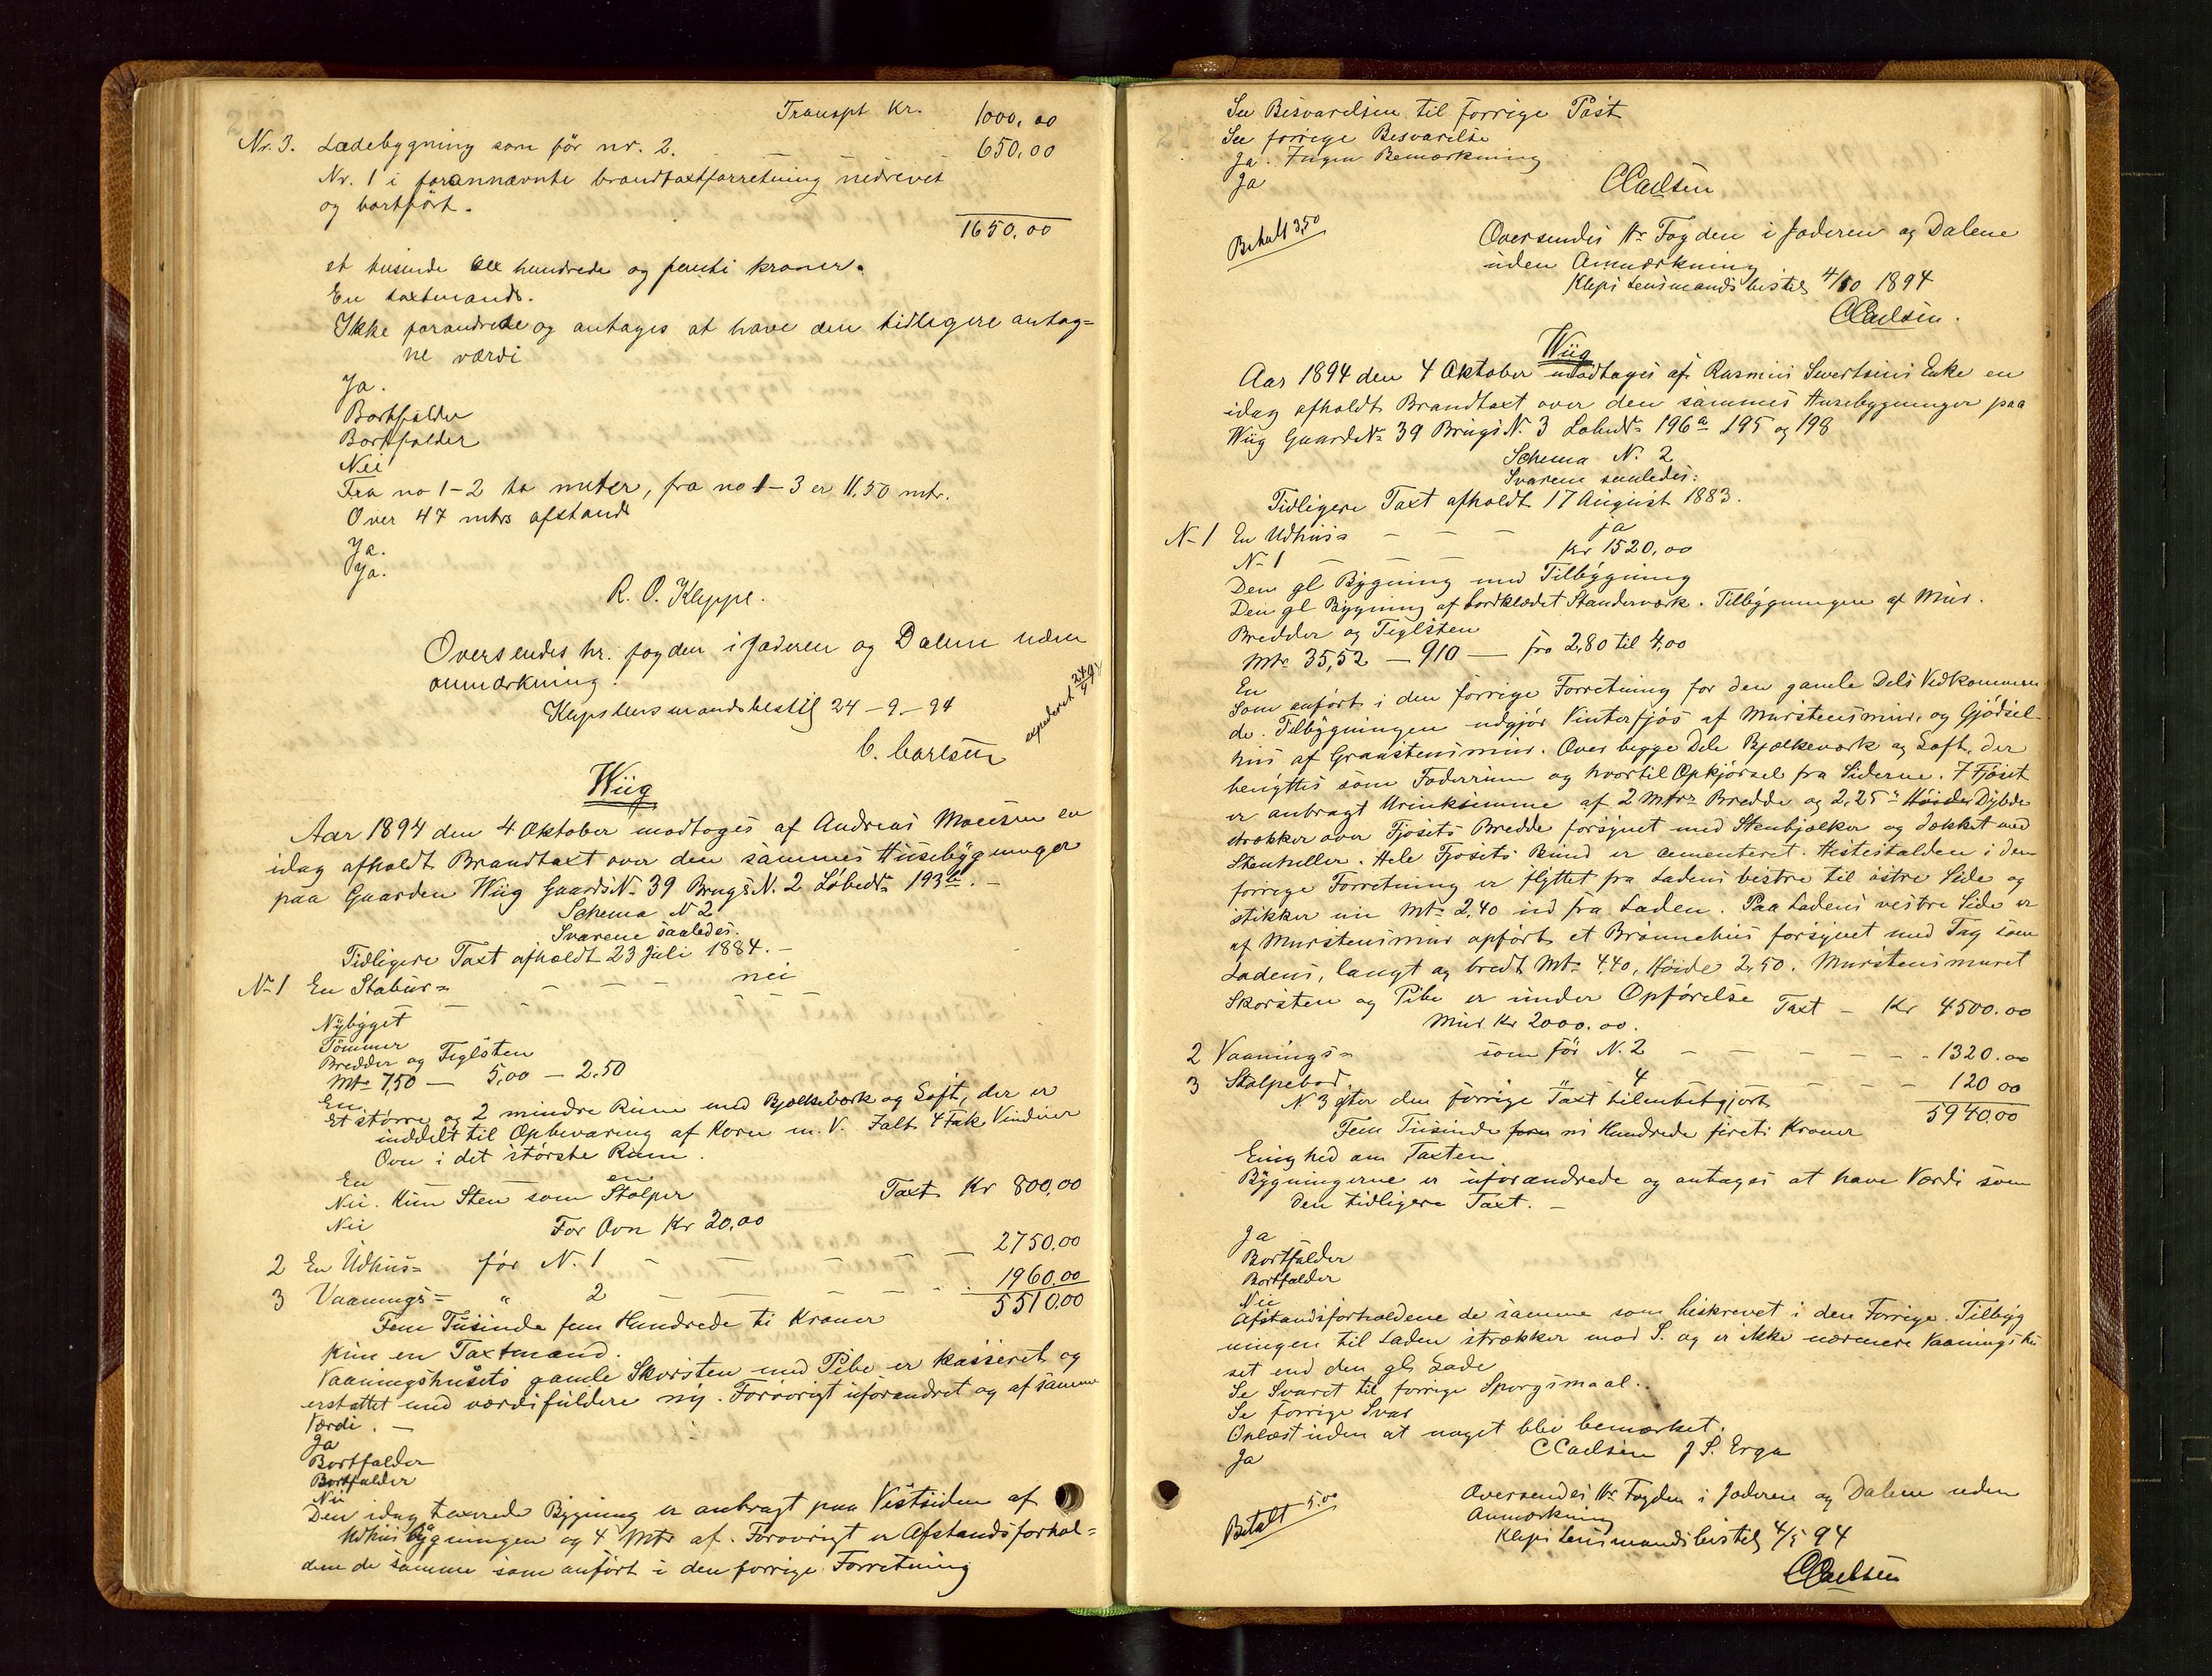 Transpt Kr. 1000,00
Nr. 3. Ladebygning som før nr. 2. 650,00
Nr. 1 i forannævnte brandtaxtforretning nedrevet
og bortført.
1650,00
et tusinde sex hundrede og femti kroner.
En taxtmand.
Ikke forandrede og antages at have den tidligere antag=
ne værdi
Ja.
Bortfalder
Bortfalder
Nei
Fra no 1-2 to meter, fra no 1-3 er 11.50 mtr.
Over 47 mtrs afstand
Ja.
Ja.
R. O. Kleppe.
Oversendes hr. fogden i Jæderen og Dalene uden
anmærkning.
Klep lensmandsbestil 24-9-94
C. Carlsen
expederet 24/9 94
Wiig
Aar 1894 den 4 Oktober modtoges af Andreas Mausen en
idag afholdt Brandtaxt over den sammes Husebygninger
paa Gaarden Wiig GaardsN. 39 BrugsN. 2 LøbeN. 193 a. -
Schema N 2
Svarene saaledes.
Tidligere Taxt afholdt 23 Juli 1884. -
N. 1 En Stabur= - - - - nei
Nybygget
Tømmer
Bredder og Teglsten
Mtr 7,50 - 5,00 - 2,50
En
Et større og 2 mindre Rum med Bjælkeværk og Loft, der er
inddelt til Opbevaring af Korn m. V. Ialt 4 Fak Vinduer
Ovn i det største Rum.
En en
Nei. Kun Sten som Stolper Taxt Kr 800,00
Nei For Ovn Kr 20,00
2 En Udhus= før N. 1 - - - - 2750,00
3 Vaanings= " 2 - - - - 1960,00
5510,00
Fem Tusinde fem Hundrede ti Kroner
Kun en Taxtmand.
Vaaningshusets gamle Skorsten med Pibe er kasseret og
erstattet med værdifuldere ny. Forøvrigt uforandret og af samme
Værdi. -
Ja
Bortfalder
Bortfalder
Nei
Den idag taxerede Bygning er anbragt paa Vestsiden af
Udhusbygningen og 4 Mtr af. Forøvrigt er Afstandsforhol=
dene de samme som anført i den forrige Forretning
See Besvarelsen til forrige Post
See forrige Besvarelse
Ja. Ingen Bemærkning
Ja
CCarlsen
Betalt 3,50
Oversendes Hr Fogden i Jæderen og Dalene
uden Anmærkning
Klepi Lensmandsbestil 4/10 1894
CCarlsen.
Wiig
Aar 1894 den 4 Oktober modtoges af Rasmus Sivertsens Enke en
idag afholdt Brandtaxt over den sammes Husebygninger paa
Wiig GaardsN. 39 BrugsN. 3 LøbeN. 196 a 195 og 198
Schema N. 2
Svarene saaledes:
Tidligere Taxt afholdt 17 August 1883.
N. 1 En Udhus= - - - ja
N. 1 - - - Kr 1520,00
Den gl Bygning med Tilbygning
Den gl Bygning af bordklædet Standerværk. Tilbygningen af Mur.
Bredder og Teglsten
Mtr 35,52 - 910 - fra 2,80 til 4,00
En
Som anført i den forrige Forretning for den gamle Dels Vedkommen
de. Tilbygningen udgjør Vinterfjøs af Murstensmur, og Gjødsel-
hus af Graastensmur. Over begge Dele Bjælkeværk og Loft, der
benyttes som Foderrum og hvortil Opkjørsel fra Siderne. I Fjøset
er anbragt Urinkumme af 2 Mtrs Bredde og 2,25 " Høide Dybde
strækker over Fjøsets Bredde forsynet med Stenbjælker og dækket med
Stenheller. Hele Fjøsets Bund er cementeret. Hestestalden i den
forrige Forretning er flyttet fra Ladens vestre til østre Side og
stikker nu Mtr 2,40 ind fra Laden. Paa Ladens vestre Side er
af Murstensmur opført et Brøndehus forsynet med Tag som
Ladens, langt og bredt Mtr 4,40, Høide 2,50. Murstensmuret
Skorsten og Pibe er under Opførelse Taxt - Kr 4500.00
Mur Kr 2000.00.
2 Vaanings= som før N. 2 - - - - - 1320.00
3 Stolpebod. " 4 - - - 120 00
N 3 efter den forrige Taxt tilintetgjort 5940,00
Fem Tusinde ni Hundrede firti Kroner
Enighed om Taxten.
Bygningerne er uforandrede og antages at have Værdi som
den tidligere Taxt. -
Ja
Bortfalder
Bortfalder
Nei
Afstandsforholdene de samme som beskrevet i den Forrige. Tilbyg
ningen til Laden strækker mod S. og er ikke nærmere Vaaningshu
set end den gl. Lade
Se Svaret til forrige Sporgsmaal.
Se forrige Svar
Oplæst uden at noget blev bemærket.
Ja CCarlsen J S. Erga
Betalt 5.00
Oversendes Hr Fogden i Jæderen og Dalene uden
Anmærkning
Klepi Lensmandsbestil 4/ 94
CCarlsen